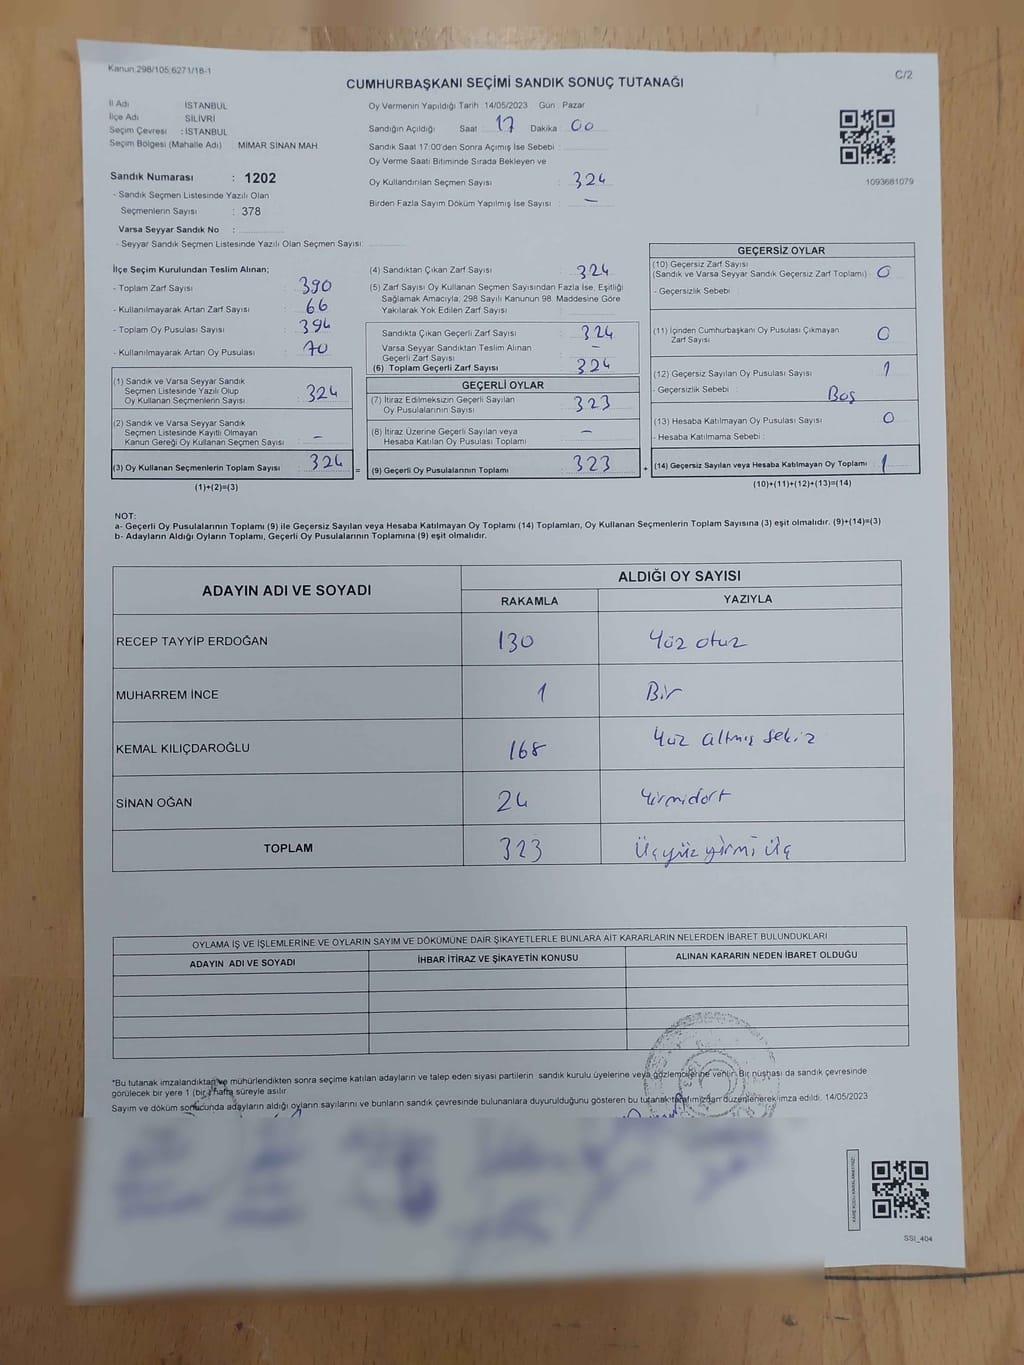 Kanun.298/105;6271/18-1
C/2
CUMHURBAŞKANI SEÇİMİ SANDIK SONUÇ TUTANAĞI
İl Adı İSTANBUL
İlçe Adı SİLİVRİ
Seçim Çevresi : İSTANBUL
Seçim Bölgesi (Mahalle Adı) : MİMAR SİNAN MAH.
Sandık Numarası : 1202
- Sandık Seçmen Listesinde Yazılı Olan
Seçmenlerin Sayısı : 378
Varsa Seyyar Sandık No :
- Seyyar Sandık Seçmen Listesinde Yazılı Olan Seçmen Sayısı:
Oy Vermenin Yapıldığı Tarih : 14/05/2023 Gün : Pazar
Sandığın Açıldığı Saat : 17 Dakika : 00
Sandık Saat 17:00'den Sonra Açımış İse Sebebi :
Oy Verme Saati Bitiminde Sırada Bekleyen ve
Oy Kullandırılan Seçmen Sayısı : 324
Birden Fazla Sayım Döküm Yapılmış İse Sayısı : —
1093681079
İlçe Seçim Kurulundan Teslim Alınan;
- Toplam Zarf Sayısı : 390
- Kullanılmayarak Artan Zarf Sayısı : 66
- Toplam Oy Pusulası Sayısı : 394
- Kullanılmayarak Artan Oy Pusulası : 70
(1) Sandık ve Varsa Seyyar Sandık
Seçmen Listesinde Yazılı Olup
Oy Kullanan Seçmenlerin Sayısı : 324
(2) Sandık ve Varsa Seyyar Sandık
Seçmen Listesinde Kayıtlı Olmayan
Kanun Gereği Oy Kullanan Seçmen Sayısı : —
(3) Oy Kullanan Seçmenlerin Toplam Sayısı : 324
(1)+(2)=(3)
(4) Sandıktan Çıkan Zarf Sayısı : 324
(5) Zarf Sayısı Oy Kullanan Seçmen Sayısından Fazla İse, Eşitliği
Sağlamak Amacıyla, 298 Sayılı Kanunun 98. Maddesine Göre
Yakılarak Yok Edilen Zarf Sayısı :
Sandıkta Çıkan Geçerli Zarf Sayısı : 324
Varsa Seyyar Sandıktan Teslim Alınan
Geçerli Zarf Sayısı : —
(6) Toplam Geçerli Zarf Sayısı : 324
GEÇERLİ OYLAR
(7) İtiraz Edilmeksizin Geçerli Sayılan
Oy Pusulalarının Sayısı : 323
(8) İtiraz Üzerine Geçerli Sayılan veya
Hesaba Katılan Oy Pusulası Toplamı : —
= (9) Geçerli Oy Pusulalarının Toplamı : 323
GEÇERSİZ OYLAR
(10) Geçersiz Zarf Sayısı
(Sandık ve Varsa Seyyar Sandık Geçersiz Zarf Toplamı) : 0
- Geçersizlik Sebebi :
(11) İçinden Cumhurbaşkanı Oy Pusulası Çıkmayan
Zarf Sayısı : 0
(12) Geçersiz Sayılan Oy Pusulası Sayısı : 1
- Geçersizlik Sebebi : Boş
(13) Hesaba Katılmayan Oy Pusulası Sayısı : 0
- Hesaba Katılmama Sebebi :
+ (14) Geçersiz Sayılan veya Hesaba Katılmayan Oy Toplamı : 1
(10)+(11)+(12)+(13)=(14)
NOT:
a- Geçerli Oy Pusulalarının Toplamı (9) ile Geçersiz Sayılan veya Hesaba Katılmayan Oy Toplamı (14) Toplamları, Oy Kullanan Seçmenlerin Toplam Sayısına (3) eşit olmalıdır. (9)+(14)=(3)
b- Adayların Aldığı Oyların Toplamı, Geçerli Oy Pusulalarının Toplamına (9) eşit olmalıdır.
ADAYIN ADI VE SOYADI
ALDIĞI OY SAYISI
RAKAMLA YAZIYLA
RECEP TAYYİP ERDOĞAN 130 Yüz otuz
MUHARREM İNCE 1 Bir
KEMAL KILIÇDAROĞLU 168 Yüz altmış sekiz
SİNAN OĞAN 24 Yirmidört
TOPLAM 323 Üçyüz yirmi Üç
OYLAMA İŞ VE İŞLEMLERİNE VE OYLARIN SAYIM VE DÖKÜMÜNE DAİR ŞİKAYETLERLE BUNLARA AİT KARARLARIN NELERDEN İBARET BULUNDUKLARI
ADAYIN ADI VE SOYADI İHBAR İTİRAZ VE ŞİKAYETİN KONUSU ALINAN KARARIN NEDEN İBARET OLDUĞU
*Bu tutanak imzalandıktan ve mühürlendikten sonra seçime katılan adayların ve talep eden siyasi partilerin sandık kurulu üyelerine veya gözlemcilerine verilir. Bir nüshası da sandık çevresinde
görülecek bir yere 1 (bir) hafta süreyle asılır.
Sayım ve döküm sonucunda adayların aldığı oyların sayılarını ve bunların sandık çevresinde bulunanlara duyurulduğunu gösteren bu tutanak tarafımızdan düzenlenerek imza edildi. 14/05/2023
SSI_404